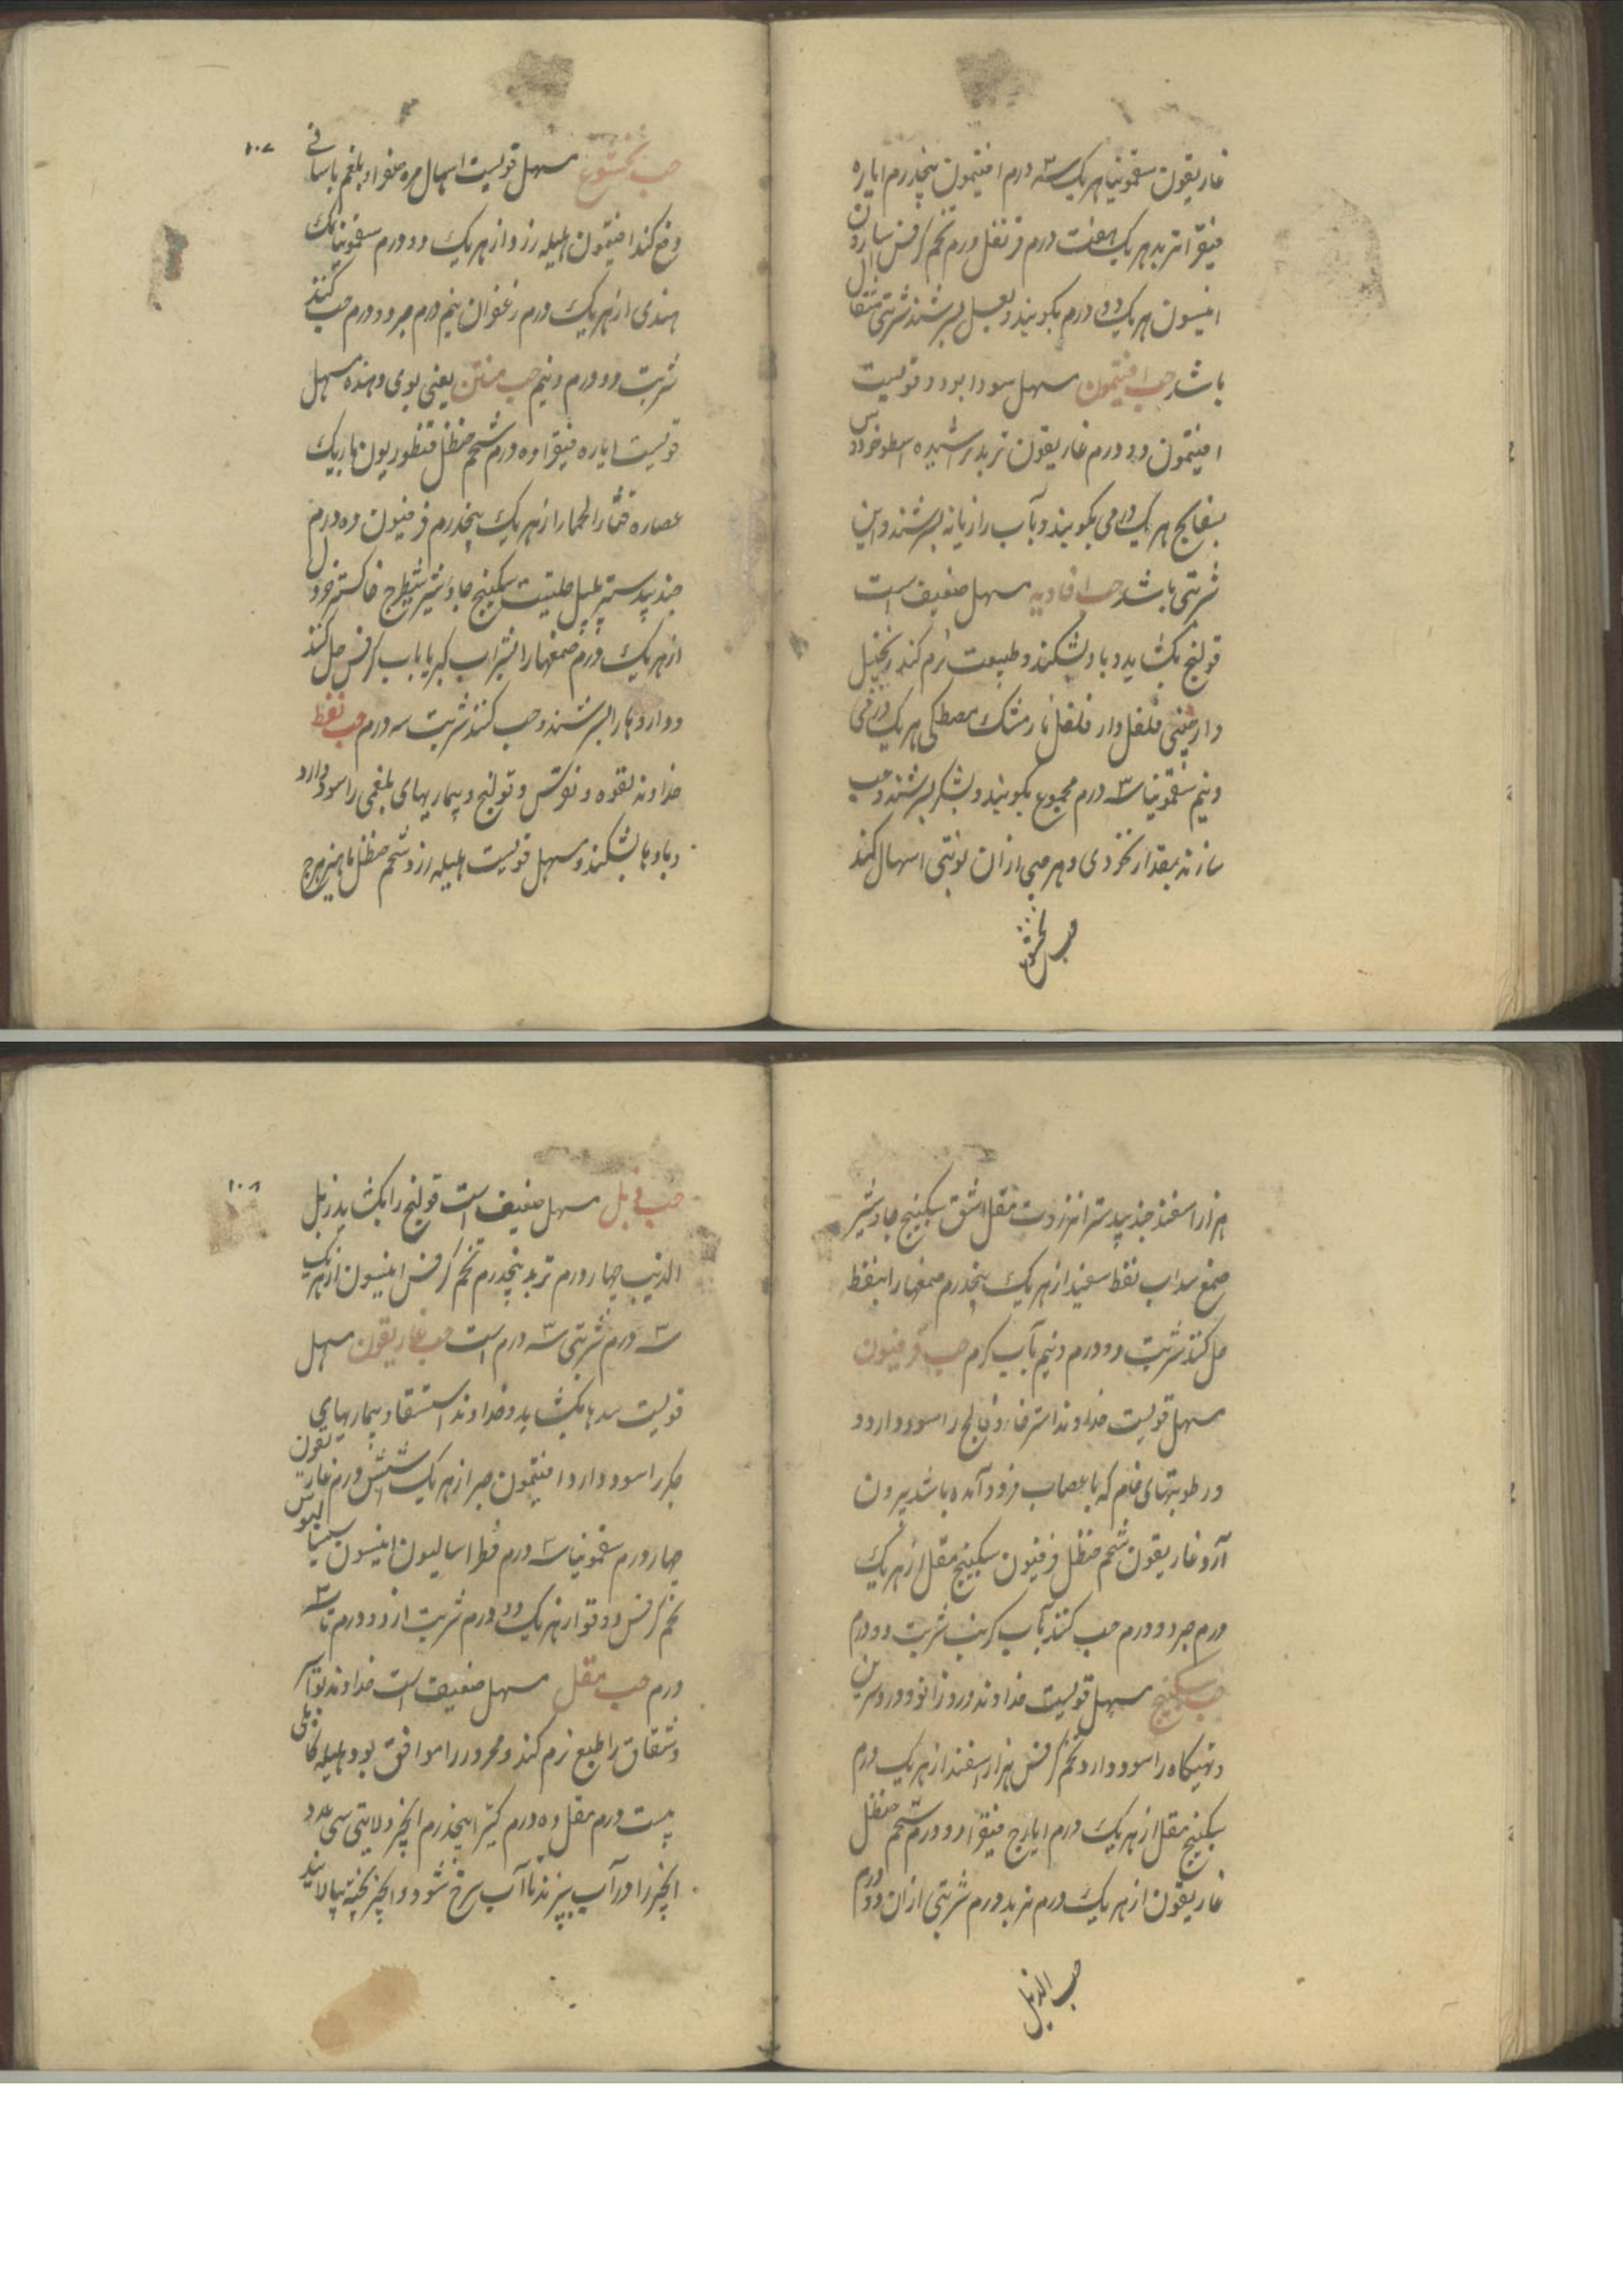 غاریقون سقمونیا هریک سه درم افتیمون پنجدرم ایاره
فیقرا تربد هریک هفت درم قرنفل درم تخم کرفس سارون
انیسون هریک دو درم بکوبند و بعسل بسرشند شربتی مثقال
باشد حب افتیمون مسهل سودا بود و قویست
افتیمون دو درم غاریقون تربد تراشیده اسطوخودوس
بسفایج هریک درمی بکوبند و بآب رازیانه بسرشند و این
شربتی باشد حب افاویه مسهل ضعیف است
قولنج بکشاید و باد بشکند و طبیعت نرم کند زنجبیل
دارچینی فلفل دار فلفل نارمشک مصطکی هریک درمی
و نیم سقمونیا سه درم مجموع بکوبند و بشکر بسرشند و حب
سازند بمقدار نخودی و هر حبی ازان نوبتی اسهال کند
حب بختیشوع
۱۰۷
حب بختیشوع مسهل قویست اسهال مره صفرا و بلغم باسانی
دفع کند افتیمون هلیله زرد از هریک دو درم سقمونیا نمک
هندی از هریک درم زعفران نیم درم صبر دو درم حب کنند
شربت دو درم و نیم حب منتن یعنی بوی دهنده مسهل
قویست ایاره فیقرا ده درم شحم حنظل قنطوریون باریک
عصاره قثا الحمار از هریک پنجدرم فرفیون ده درم
جندبیدستر پلپل حلتیت سکبینج جاوشیر شیطرج خاکستر خردل
از هریک درم صمغها را بشراب کبر یا باب کرفس حل کنند
و داروها را بسرشند و حب کنند شربت سه درم حب نفط
خداوند لقوه و نقرس و قولنج و بیماریهای بلغمی را سود دارد
و بادها بشکند و مسهل قویست هلیله زرد شحم حنظل ماهیزهرج
هزار اسفند جندبیدستر انزروت مقل اشق سکبینج جاوشیر
صمغ سداب نفط سفید از هریک پنجدرم صمغها را بنفط
حل کنند شربت دو درم و نیم بآب کرم حب فرفیون
مسهل قویست خداوند استرخا و فالج را سود دارد و
و رطوبتهای خام که باعصاب فرود آمده باشد بیرون
آرد غاریقون شحم حنظل فرفیون سکبینج مقل از هریک
درم صبر دو درم حب کنند بآب کرنب شربت دو درم
حب سکبینج مسهل قویست خداوند درد زانو و درد سرین
و تهیکاه را سود دارد تخم کرفس هزار اسفند از هریک درم
سکبینج مقل از هریک درم ایارج فیقرا دو درم شحم حنظل
غاریقون از هریک درم تربد درم شربتی ازان دو درم
حب النیل
۱۰۸
حب نیل مسهل ضعیف است قولنج را بکشاید زبل
الذیب چهار درم تربد پنجدرم تخم کرفس انیسون از هریک
سه درم شربتی سه درم است حب غاریقون مسهل
قویست سدها بکشاید و خداوند استسقا و بیماریهای
جکر را سود دارد افتیمون صبر از هریک شش درم غاریقون
چهار درم سقمونیا سه درم فطراسالیون انیسون سیسالیوس
تخم کرفس دوقو از هریک دو درم شربت از دو درم تا سه
درم حب مقل مسهل ضعیف است خداوند بواسیر
و شقاق را طبع نرم کند و محرور را موافق بود هلیله کابلی
بیست درم مقل ده درم کتیرا پنجدرم انجیر ولایتی سی عدد
انجیر را در آب بپزند تا آب سرخ شود و انجیر پخته بپالایند